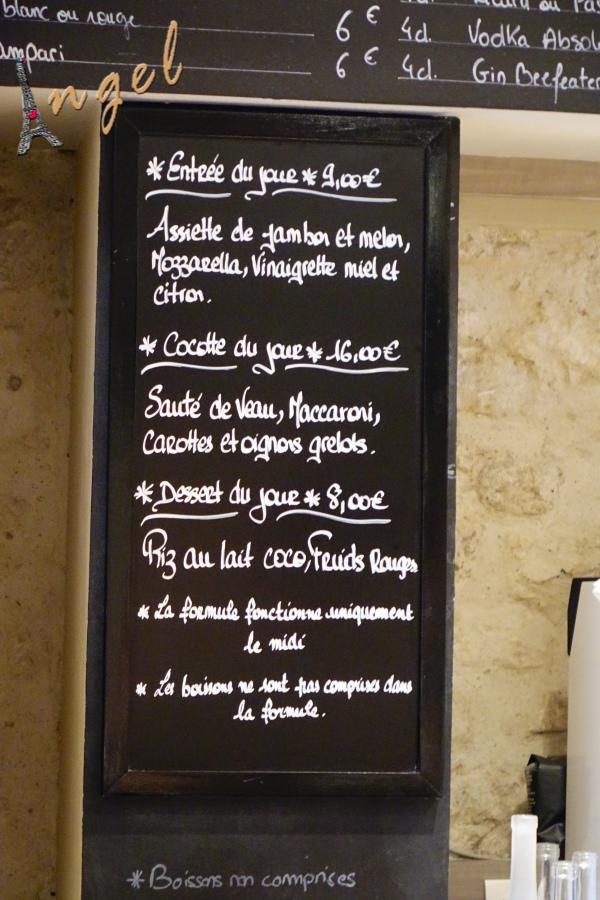 blanc ou rouge 6 €
ampari 6 €
4cl. Vodka Absol
4cl. Gin Beefeater
Angel
* Entrée du jour * 9,00€
Assiette de jambon et melon,
Mozzarella, Vinaigrette miel et
citron.
* Cocotte du jour * 16,00€
Sauté de Veau, Maccaroni,
Carottes et oignons grelots.
* Dessert du jour * 8,00€
Riz au lait coco, Fruids Rouges
* La formule fonctionne uniquement
le midi
* Les boissons ne sont pas comprises dans
la formule.
* Boissons non commprises